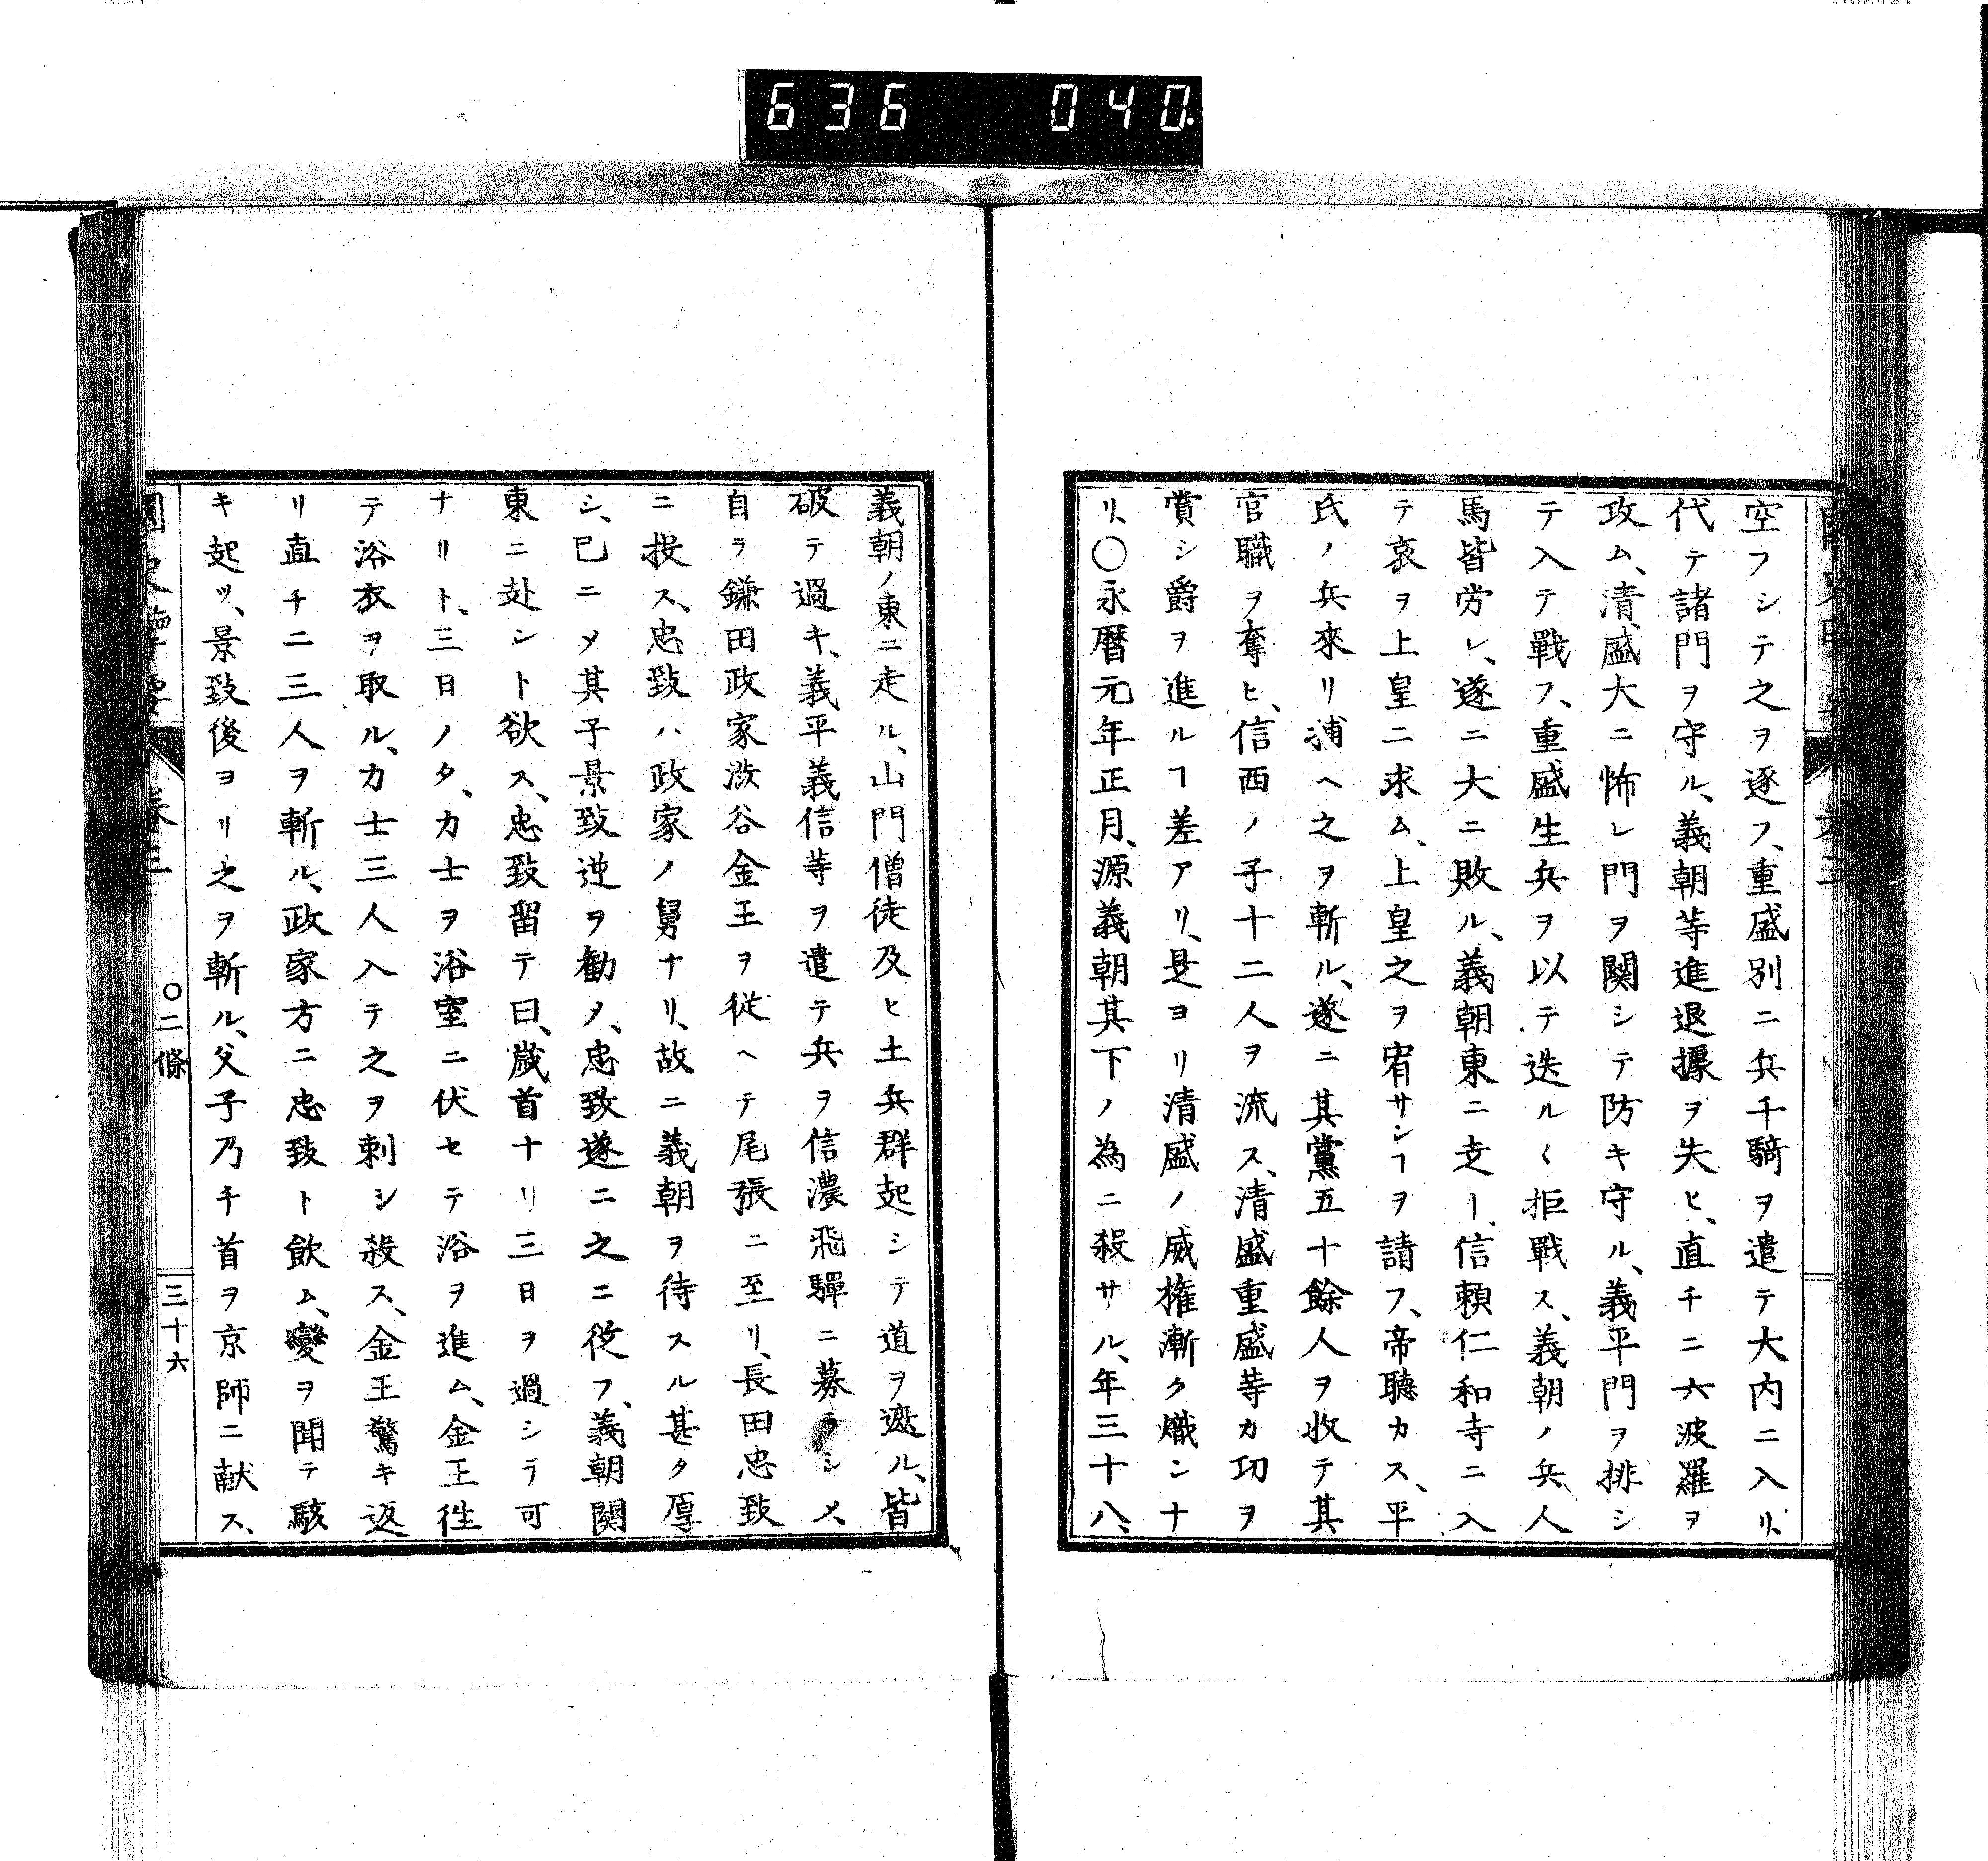 636 040.
空フシテ之ヲ逐フ、重盛別ニ兵千騎ヲ遣テ大内ニ入リ、
代テ諸門ヲ守ル、義朝等進退據ヲ失ヒ、直チニ六波羅ヲ
攻ム、清盛大ニ怖レ門ヲ関シテ防キ守ル、義平門ヲ排シ
テ入テ戰フ、重盛生兵ヲ以テ迭ル〱拒戰ス、義朝ノ兵人
馬皆労レ、遂ニ大ニ敗ル、義朝東ニ走ー、信頼仁和寺ニ入
テ哀ヲ上皇ニ求ム、上皇之ヲ宥サンヿヲ請フ、帝聽カス、平
氏ノ兵來リ浦ヘ之ヲ斬ル、遂ニ其黨五十餘人ヲ收テ其
官職ヲ奪ヒ、信西ノ子十二人ヲ流ス、清盛重盛等カ功ヲ
賞シ爵ヲ進ルヿ差アリ、是ヨリ清盛ノ威権漸ク熾ンナ
リ、〇永暦元年正月、源義朝其下ノ為ニ殺サル、年三十八、
義朝ノ東ニ走ル、山門僧徒及ヒ土兵群起シテ道ヲ遮ル、皆
破テ過キ、義平義信等ヲ遣テ兵ヲ信濃飛驒ニ募ラシメ、
自ラ鎌田政家渋谷金王ヲ従ヘテ尾張ニ至リ、長田忠致
ニ投ス、忠致ハ政家ノ舅ナリ、故ニ義朝ヲ待スル甚タ厚
シ、已ニメ其子景致逆ヲ勧メ、忠致遂ニ之ニ從フ、義朝関
東ニ赴ント欲ス、忠致留テ曰、歳首ナリ三日ヲ過シテ可
ナリト、三日ノ夕、力士ヲ浴室ニ伏セテ浴ヲ進ム、金王徃
テ浴衣ヲ取ル、力士三人入テ之ヲ刺シ殺ス、金王驚キ返
リ直チニ三人ヲ斬ル、政家方ニ忠致ト飲ム、變ヲ聞テ駭
キ起ツ、景致後ヨリ之ヲ斬ル、父子乃チ首ヲ京師ニ献ス、
卷三 〇二條 三十六